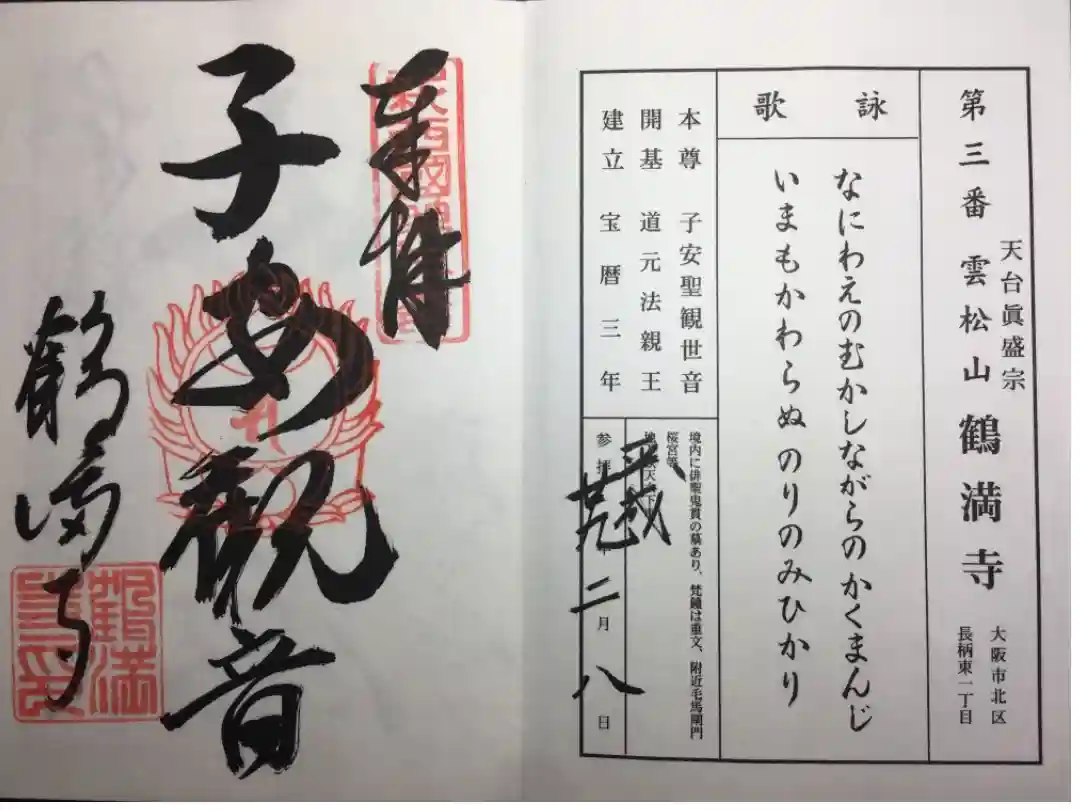 天台眞盛宗
第三番 雲松山 鶴満寺
大阪市北区
長柄東一丁目
詠歌
なにわえのむかしながらのかくまんじ
いまもかわらぬのりのみひかり
本尊 子安聖観世音
開基 道元法親王
建立 宝暦三年
境内に俳聖鬼貫の墓あり、梵鐘は重文、附近毛馬閘門
桜宮等
平成
参拝 廿九年 二月 八日
奉拝
子安観音
鶴満寺
鶴満
寺印